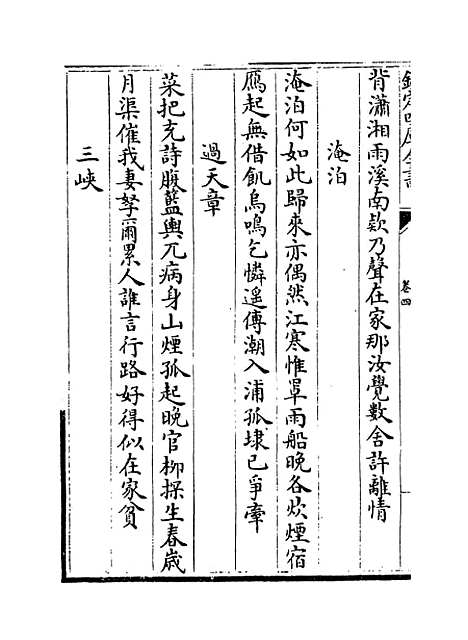 欽定四庫全書
卷四
背瀟湘雨溪南欵乃聲在家那汝覺數舍許離情
淹泊
淹泊何如此歸來亦偶然江寒惟罩雨船晚各炊煙宿
鴈起無借飢烏鳴乞憐遥傳潮入浦孤埭已爭牽
過天章
菜把充詩腹籃輿兀病身山煙孤起晚官栁探生春歳
月渠催我妻孥爾累人誰言行路好得似在家貧
三峽